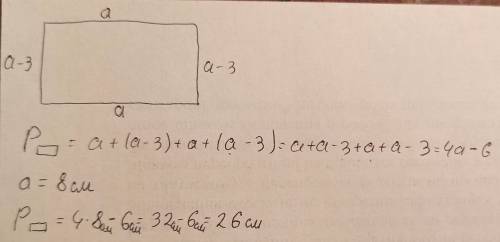 a
a-3
a-3
a
P▭ = a+(a-3)+a+(a-3)=a+a-3+a+a-3=4a-6
a=8см
P▭ =4·8см-6см=32см-6см=26см